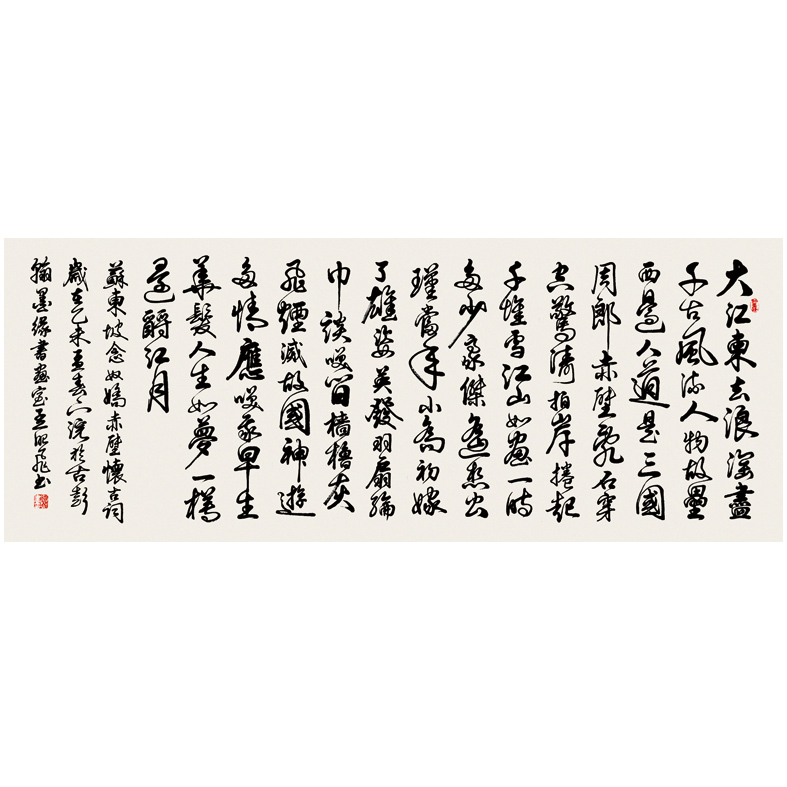 大江東去浪淘盡
千古風流人物故壘
西邊人道是三國
周郎赤壁亂石穿
空驚濤拍岸捲起
千堆雪江山如畫一時
多少豪傑遙想公
瑾當年小喬初嫁
了雄姿英發羽扇綸
巾談笑間檣櫓灰
飛煙滅故國神遊
多情應笑我早生
華髮人生如夢一樽
還酹江月
蘇東坡念奴嬌赤壁懷古詞
歲在乙未孟春浣於古彭
翰墨緣書畫室王飛书